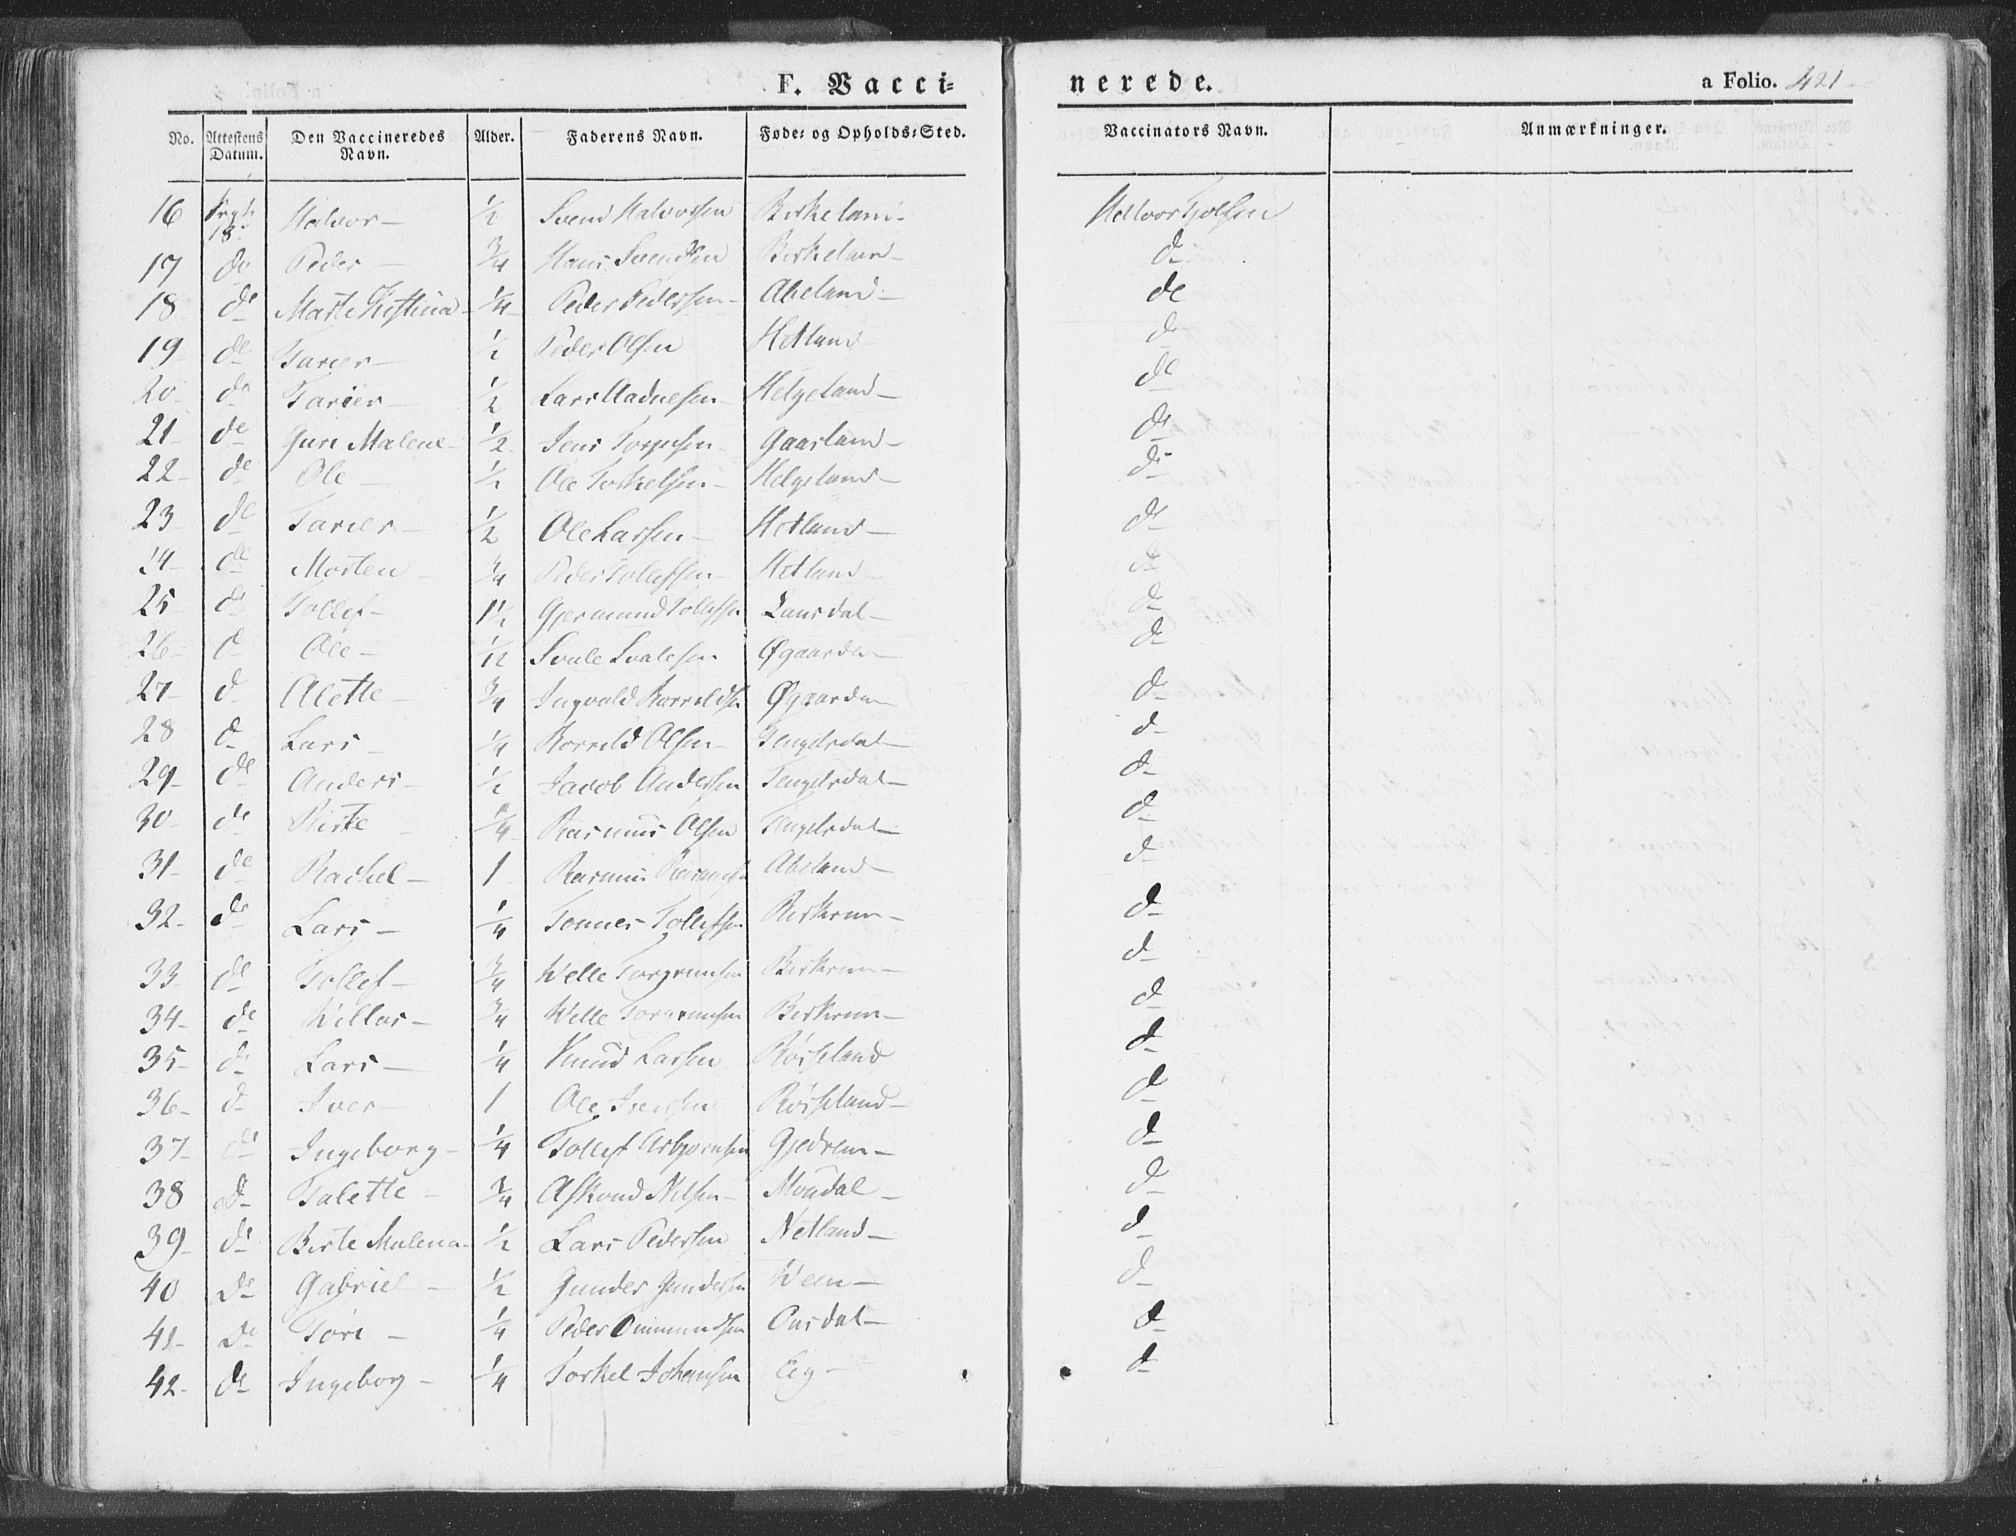 F. Vacci= nerede. a Folio. 421
No. Attestens Datum. Den Vaccineredes Navn. Alder. Faderens Navn. Føde= og Opholds=Sted. Vaccinators Navn. Anmærkninger.
16 18 Halvor – 1/2 Svend Halvorsen Birkeland –
17 do Peder – 3/4 Hans Svendsen Birkeland – d
18 de Marte Kistina – 1/4 Peder Pedersen – Abeland – de
19 de Tarier – 1/2 Peder Olsen Hetland d
20 do Tarier – 1/2 Lars Aadnesen – Helgeland – de
21 de Guri Malene – 1/2 Jens Gaasland – de
22 – de Ole – 1/2 Ole Torkelsen – Helgeland – de
23 de Tarier – 1/2 Ole Larsen – Hetland – de
24 – de Morten – 3/4 Peder Tollefsen – Hetland – de
25 d Tollef – 1 1/2 Gjermund Tollefsen Lausdal – d
26 – d Ole – 1/12 Svale Svalesen Øgaarden – d
27 – d Alette – 3/4 Ingvald Øgaarden – d
28 d Lars – 1/4 Olsen – Tengelsdal – d
29 – de Anders – 1/2 Jacob Andersen Tengelsdal – d
30 – de Kiste – 1/4 Rasmus Olsen Tengelsdal – d
31 – de Rachel – 1 Rasmus Rasmussen Abeland – d
32 – de Lars – 1/4 Tønnes Tollefsen Birkrem – d
33 de Tollef – 3/4 Welle Torgrimsen Birkrem – d
34 – de Willas – 3/4 Welle Torgrimsen Birkrem – d
35 – d Lars – 1/4 Knud Larsen Røisland d
36 – d Iver – 1 Ole Iversen Røisland – d
37 – d Ingeborg – 1/4 Tollef Asbjørnsen Gjedrem – d
38 d Talette – 3/4 Askoud Nilsen – Moudal – d
39 – d Birte Malena – 1/2 Lars Pedersen Netland – d
40 de Gabriel – 1/2 Gunder Gundersen Ween – d
41 – de Tore – 1/4 Peder Ommundsen Ousdal – d
42 – de Ingeborg – 1/4 Torkel Johansen Eeg – d